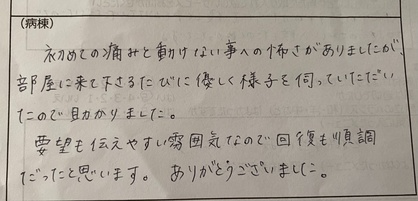 (病棟)
初めての痛みと動けない事への怖さがありましたが、
部屋に来て下さるたびに優しく様子を伺っていただい
たので助かりました。
要望も伝えやすい雰囲気なので回復も順調
だったと思います。 ありがとうございました。